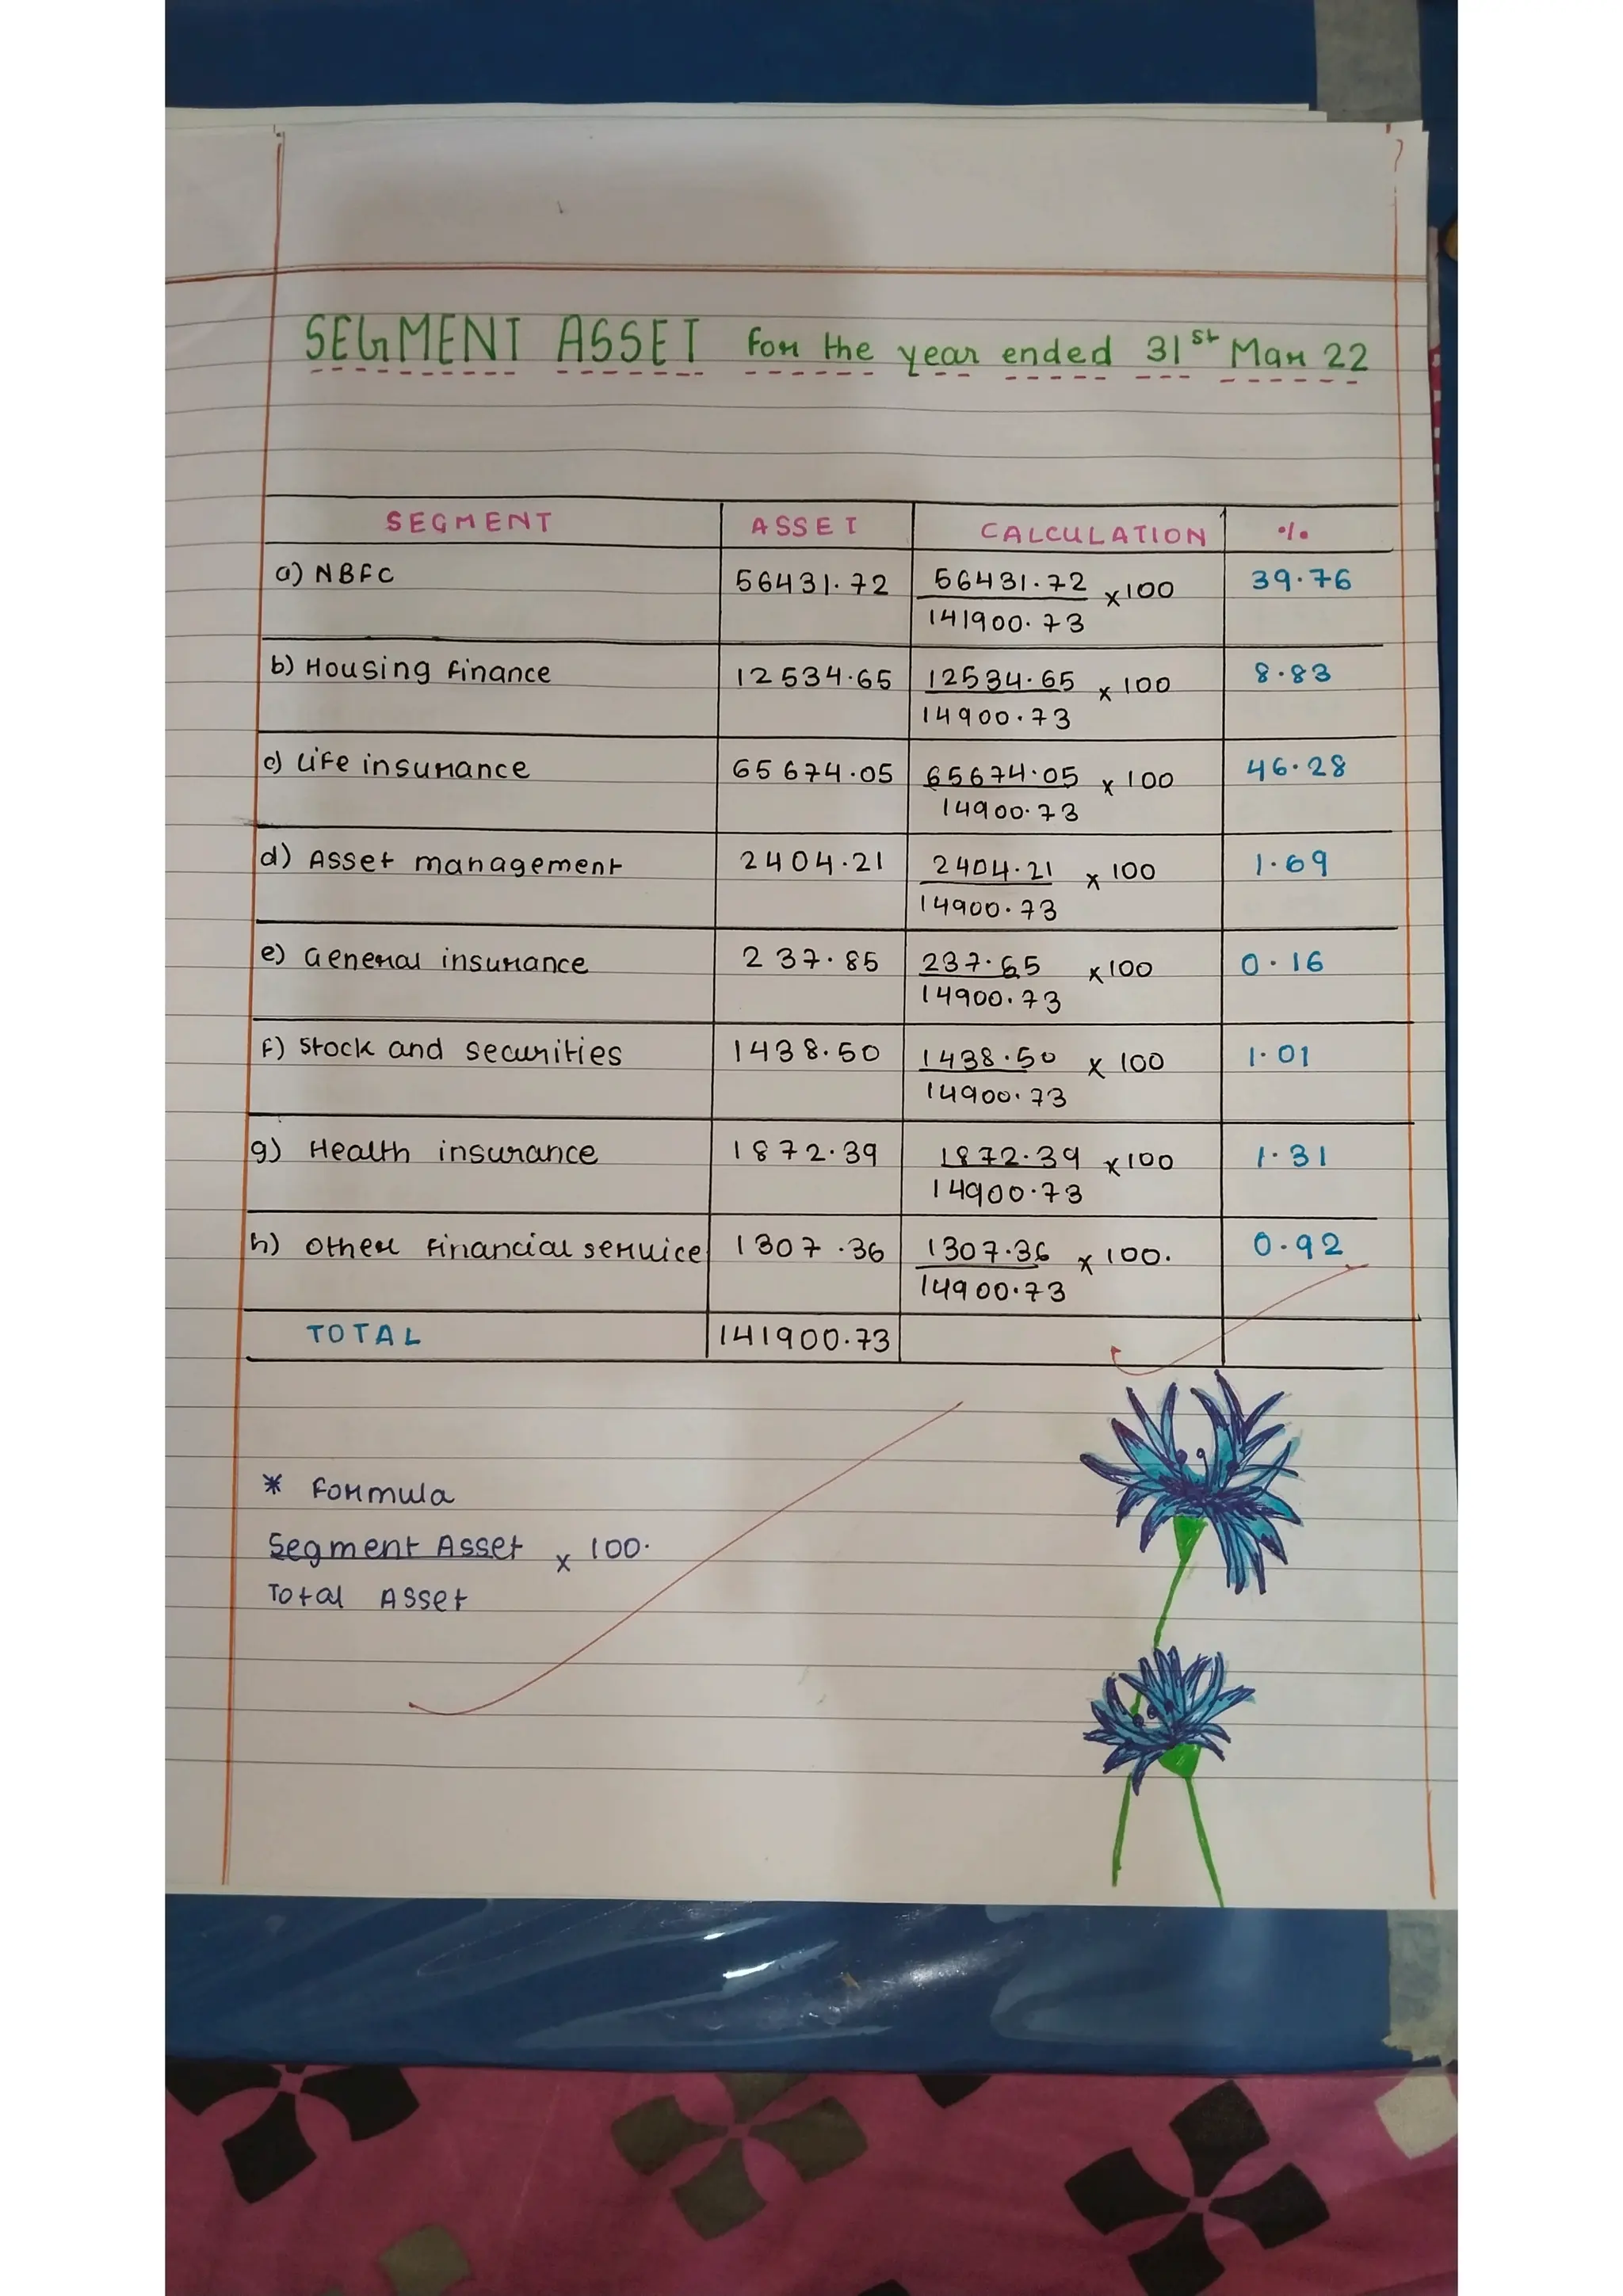 SEGMENT ASSET for the year ended 31st Mar 22
SEGMENT ASSET CALCULATION %
a) NBFC 56431.72 56431.72 x100 39.76
141900.73
b) Housing finance 12534.65 12534.65 x 100 8.83
14900.73
c) Life insurance 65674.05 65674.05 x 100 46.28
14900.73
d) Asset management 2404.21 2404.21 x 100 1.69
14900.73
e) General insurance 237.85 237.65 x100 0.16
14900.73
f) Stock and securities 1438.50 1438.50 x 100 1.01
14900.73
g) Health insurance 1872.39 1872.39 x100 1.31
14900.73
h) Other financial service 1307.36 1307.36 x 100. 0.92
14900.73
TOTAL 141900.73
* Formula
Segment Asset x 100.
Total Asset